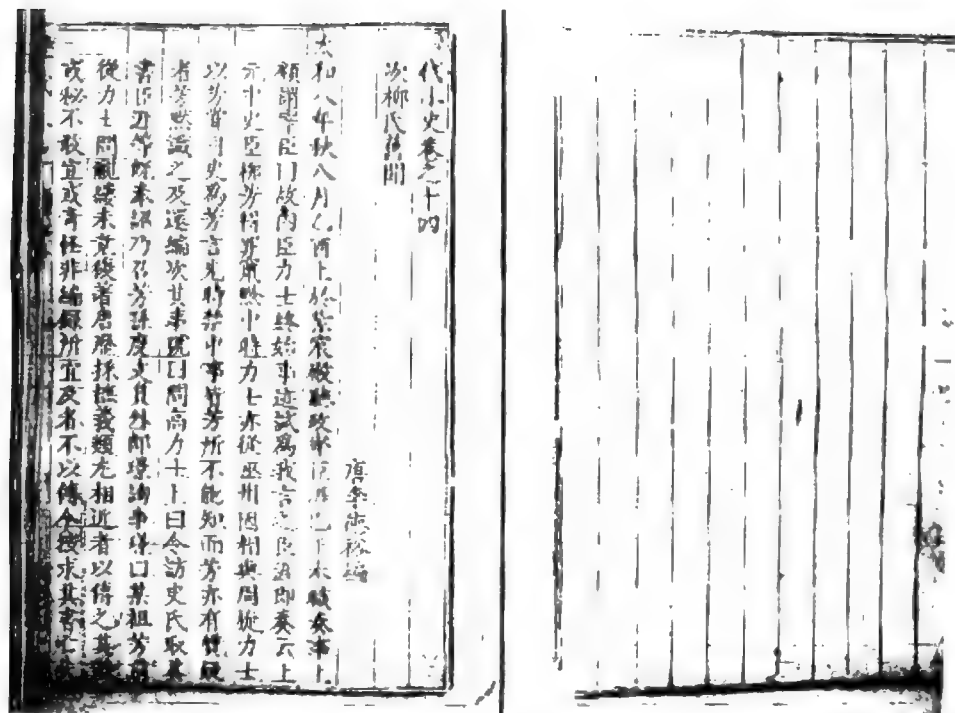 代小史卷之十四
次柳氏舊聞
唐李德裕編
太和八年秋八月乙酉上於紫宸殿聽政宰臣涯已下奉職奏事上
顧謂宰臣曰故內臣力士終始事迹試爲我言之臣涯即奏云上
元中史臣柳芳得罪竄黔中時力士亦從巫州因相與周旋力士
以芳嘗司史爲芳言先時禁中事皆芳所不能知而芳亦有質疑
者芳默識之及還編次其事號曰問高力士上曰令訪史氏取其
書臣涯等既奉詔乃召芳孫度支員外郎璟詢事璟曰某祖芳前
從力士問覼縷未竟後著唐歷採摭義類尤相近者以傳之其餘
或秘不敢宣或奇怪非編錄所宜及者不以傳今按求其書亡失